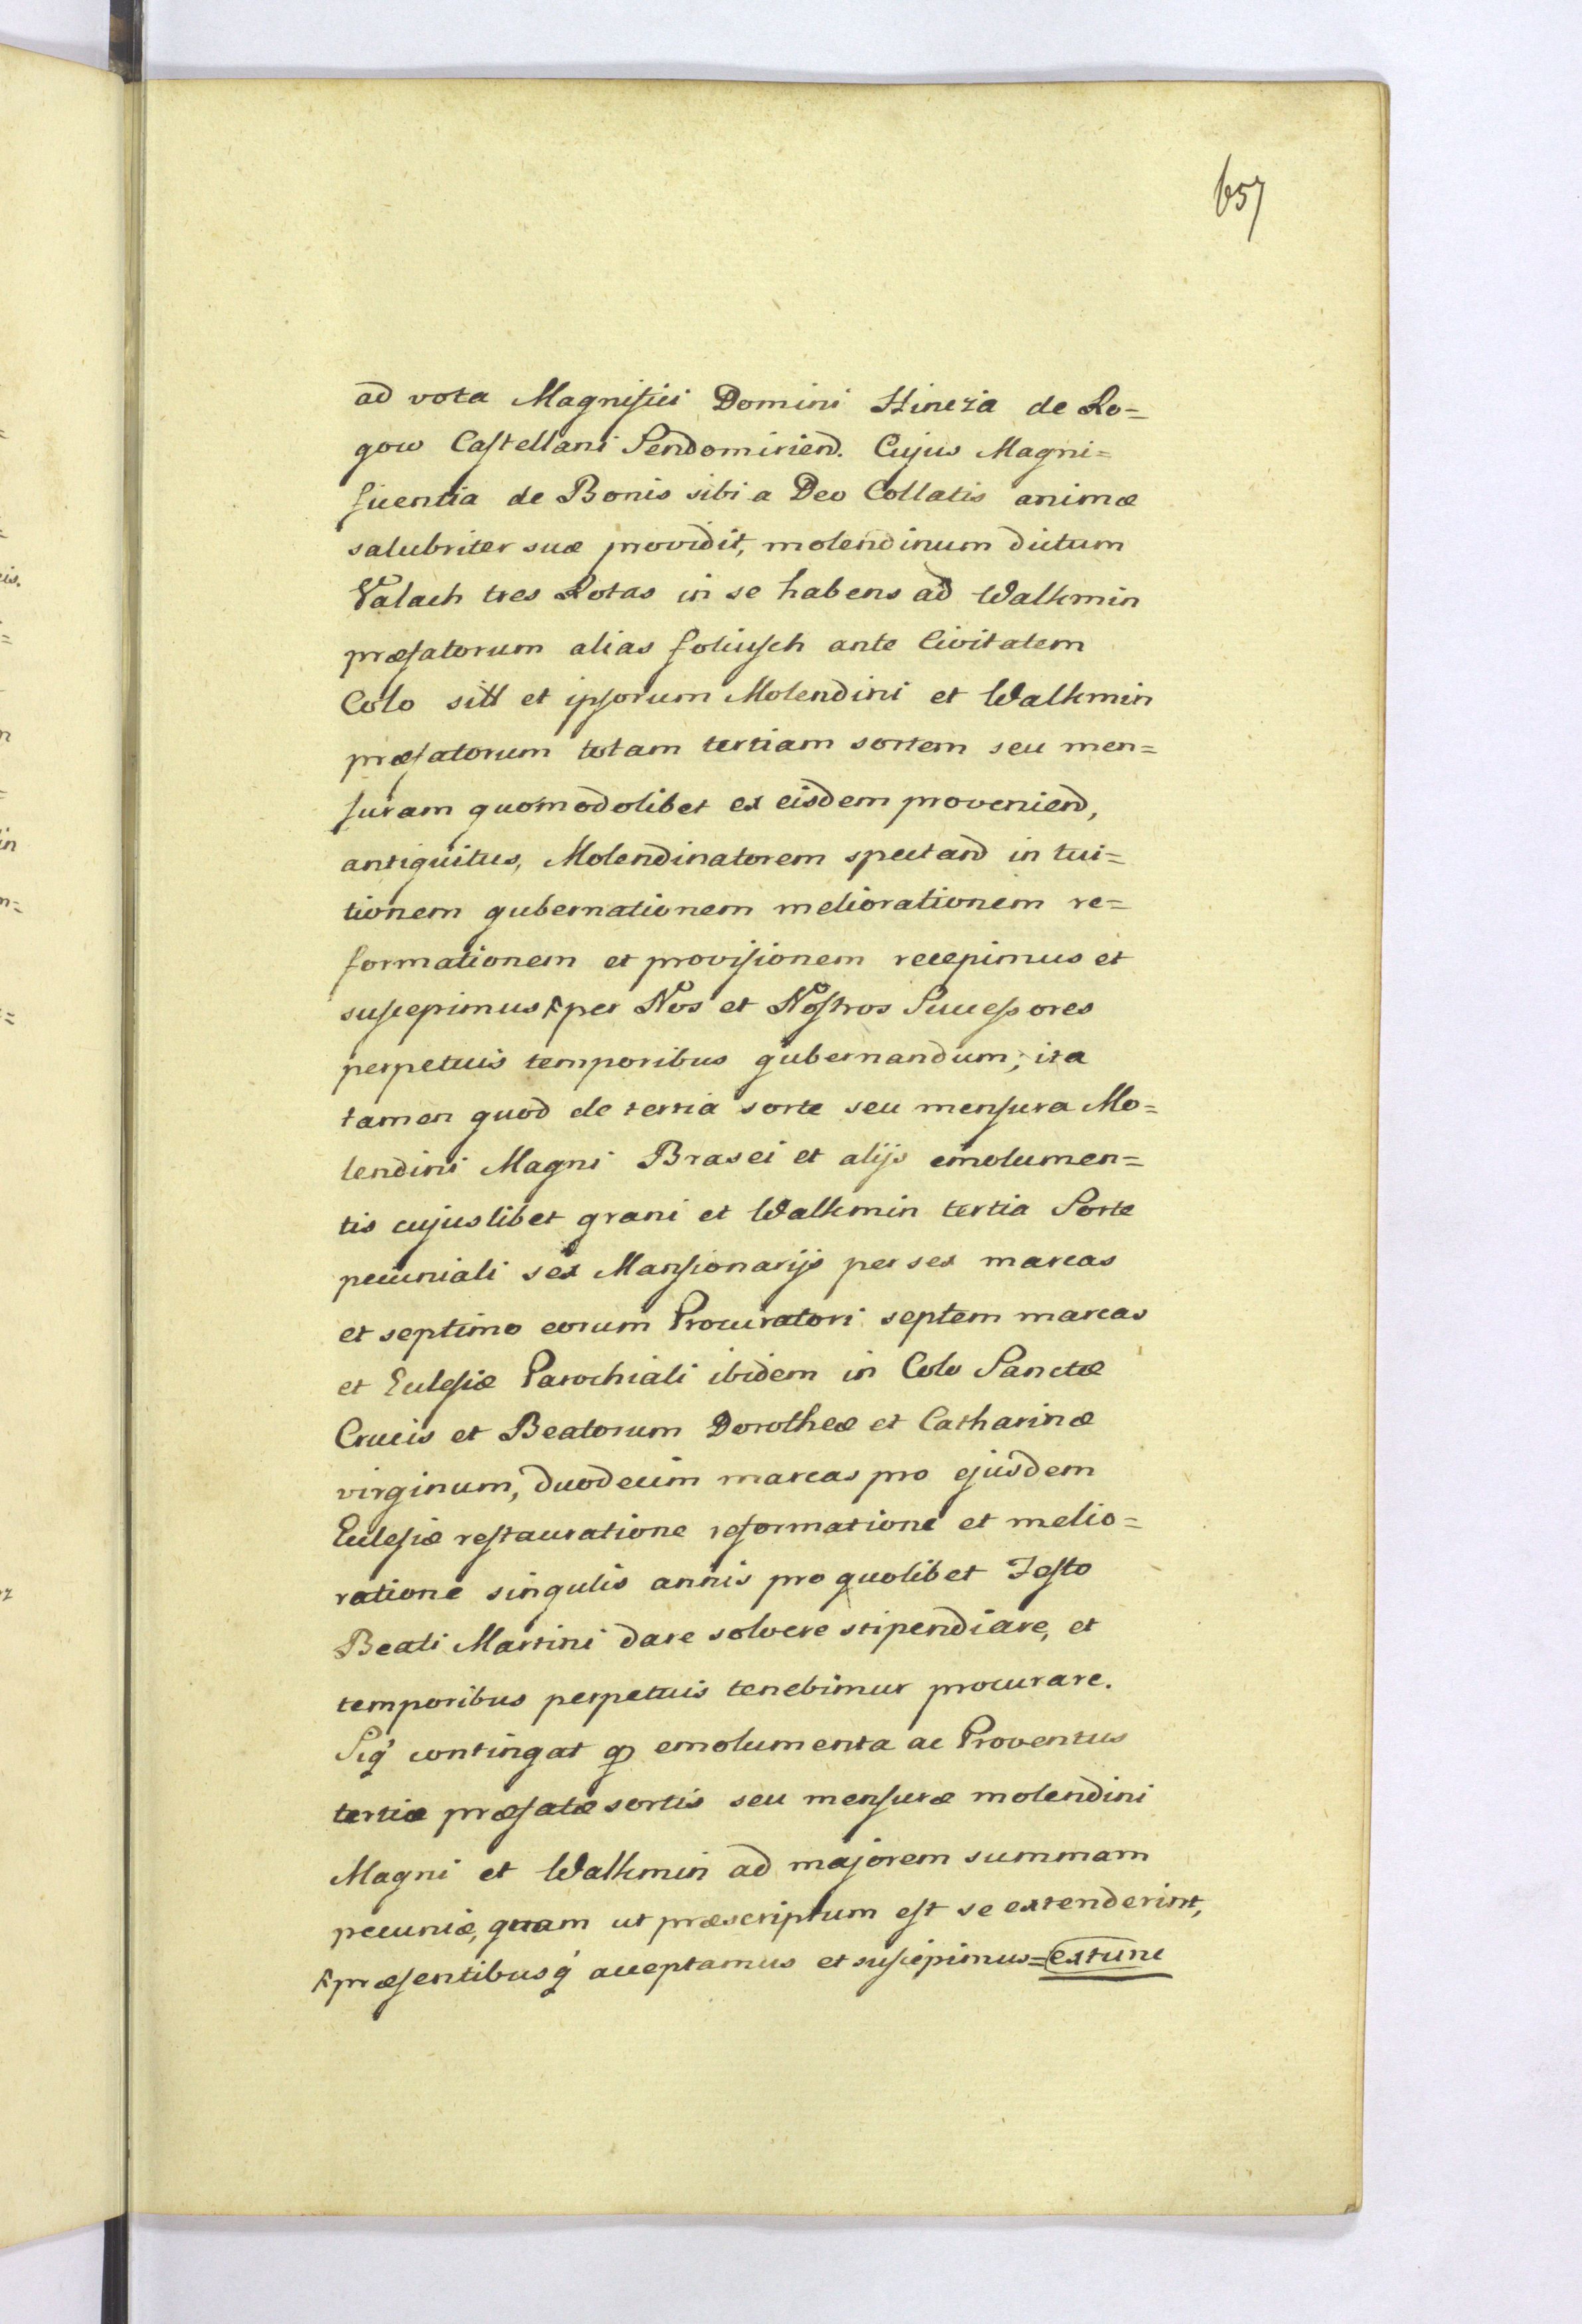 657
ad vota Magnifici Domini Hincza de Ro=
gow Castellani Sendomiriend. Cujus Magni=
ficentia de Bonis sibi a Deo Collatis animæ
salubriter suæ providit, molendinum dictum
Valach tres Rotas in se habens ad Walkmin
præfatorum alias foliusch ante Civitatem
Colo sitt et ipsorum Molendini et Walkmin
præfatorum totam tertiam sortem seu men=
suram quomodolibet ex eisdem proveniend,
antiquitus, Molendinatorem spectand in tui=
tionem gubernationem meliorationem re=
formationem et provisionem recepimus et
suscepimus ꝉ per Nos et Nostros Successores
perpetuis temporibus gubernandum; ita
tamen quod de tertia sorte seu mensura Mo=
lendini Magni Brasei et alijs emolumen=
tis cujuslibet grani et Walkmin tertia Sorte
pecuniali sex Mansionarijs per sex marcas
et septimo eorum Procuratori septem marcas
et Eclesiæ Parochiali ibidem in Colo Sanctæ
Crucis et Beatorum Dorotheæ et Catharinæ
virginum, duodecim marcas pro ejusdem
Eclesiæ restauratione reformatione et melio=
ratione singulis annis pro quolibet Festo
Beati Martini dare solvere stipendiare, et
temporibus perpetuis tenebimur procurare.
Siq̃ contingat qɔ emolumenta ac Proventus
tertiæ præfatæ sortis seu mensuræ molendini
Magni et Walkmin ad majorem summam
pecuniæ, quam ut præscriptum est se extenderint,
ꝉ præsentibusq̃ acceptamus et suscipimus = extunc